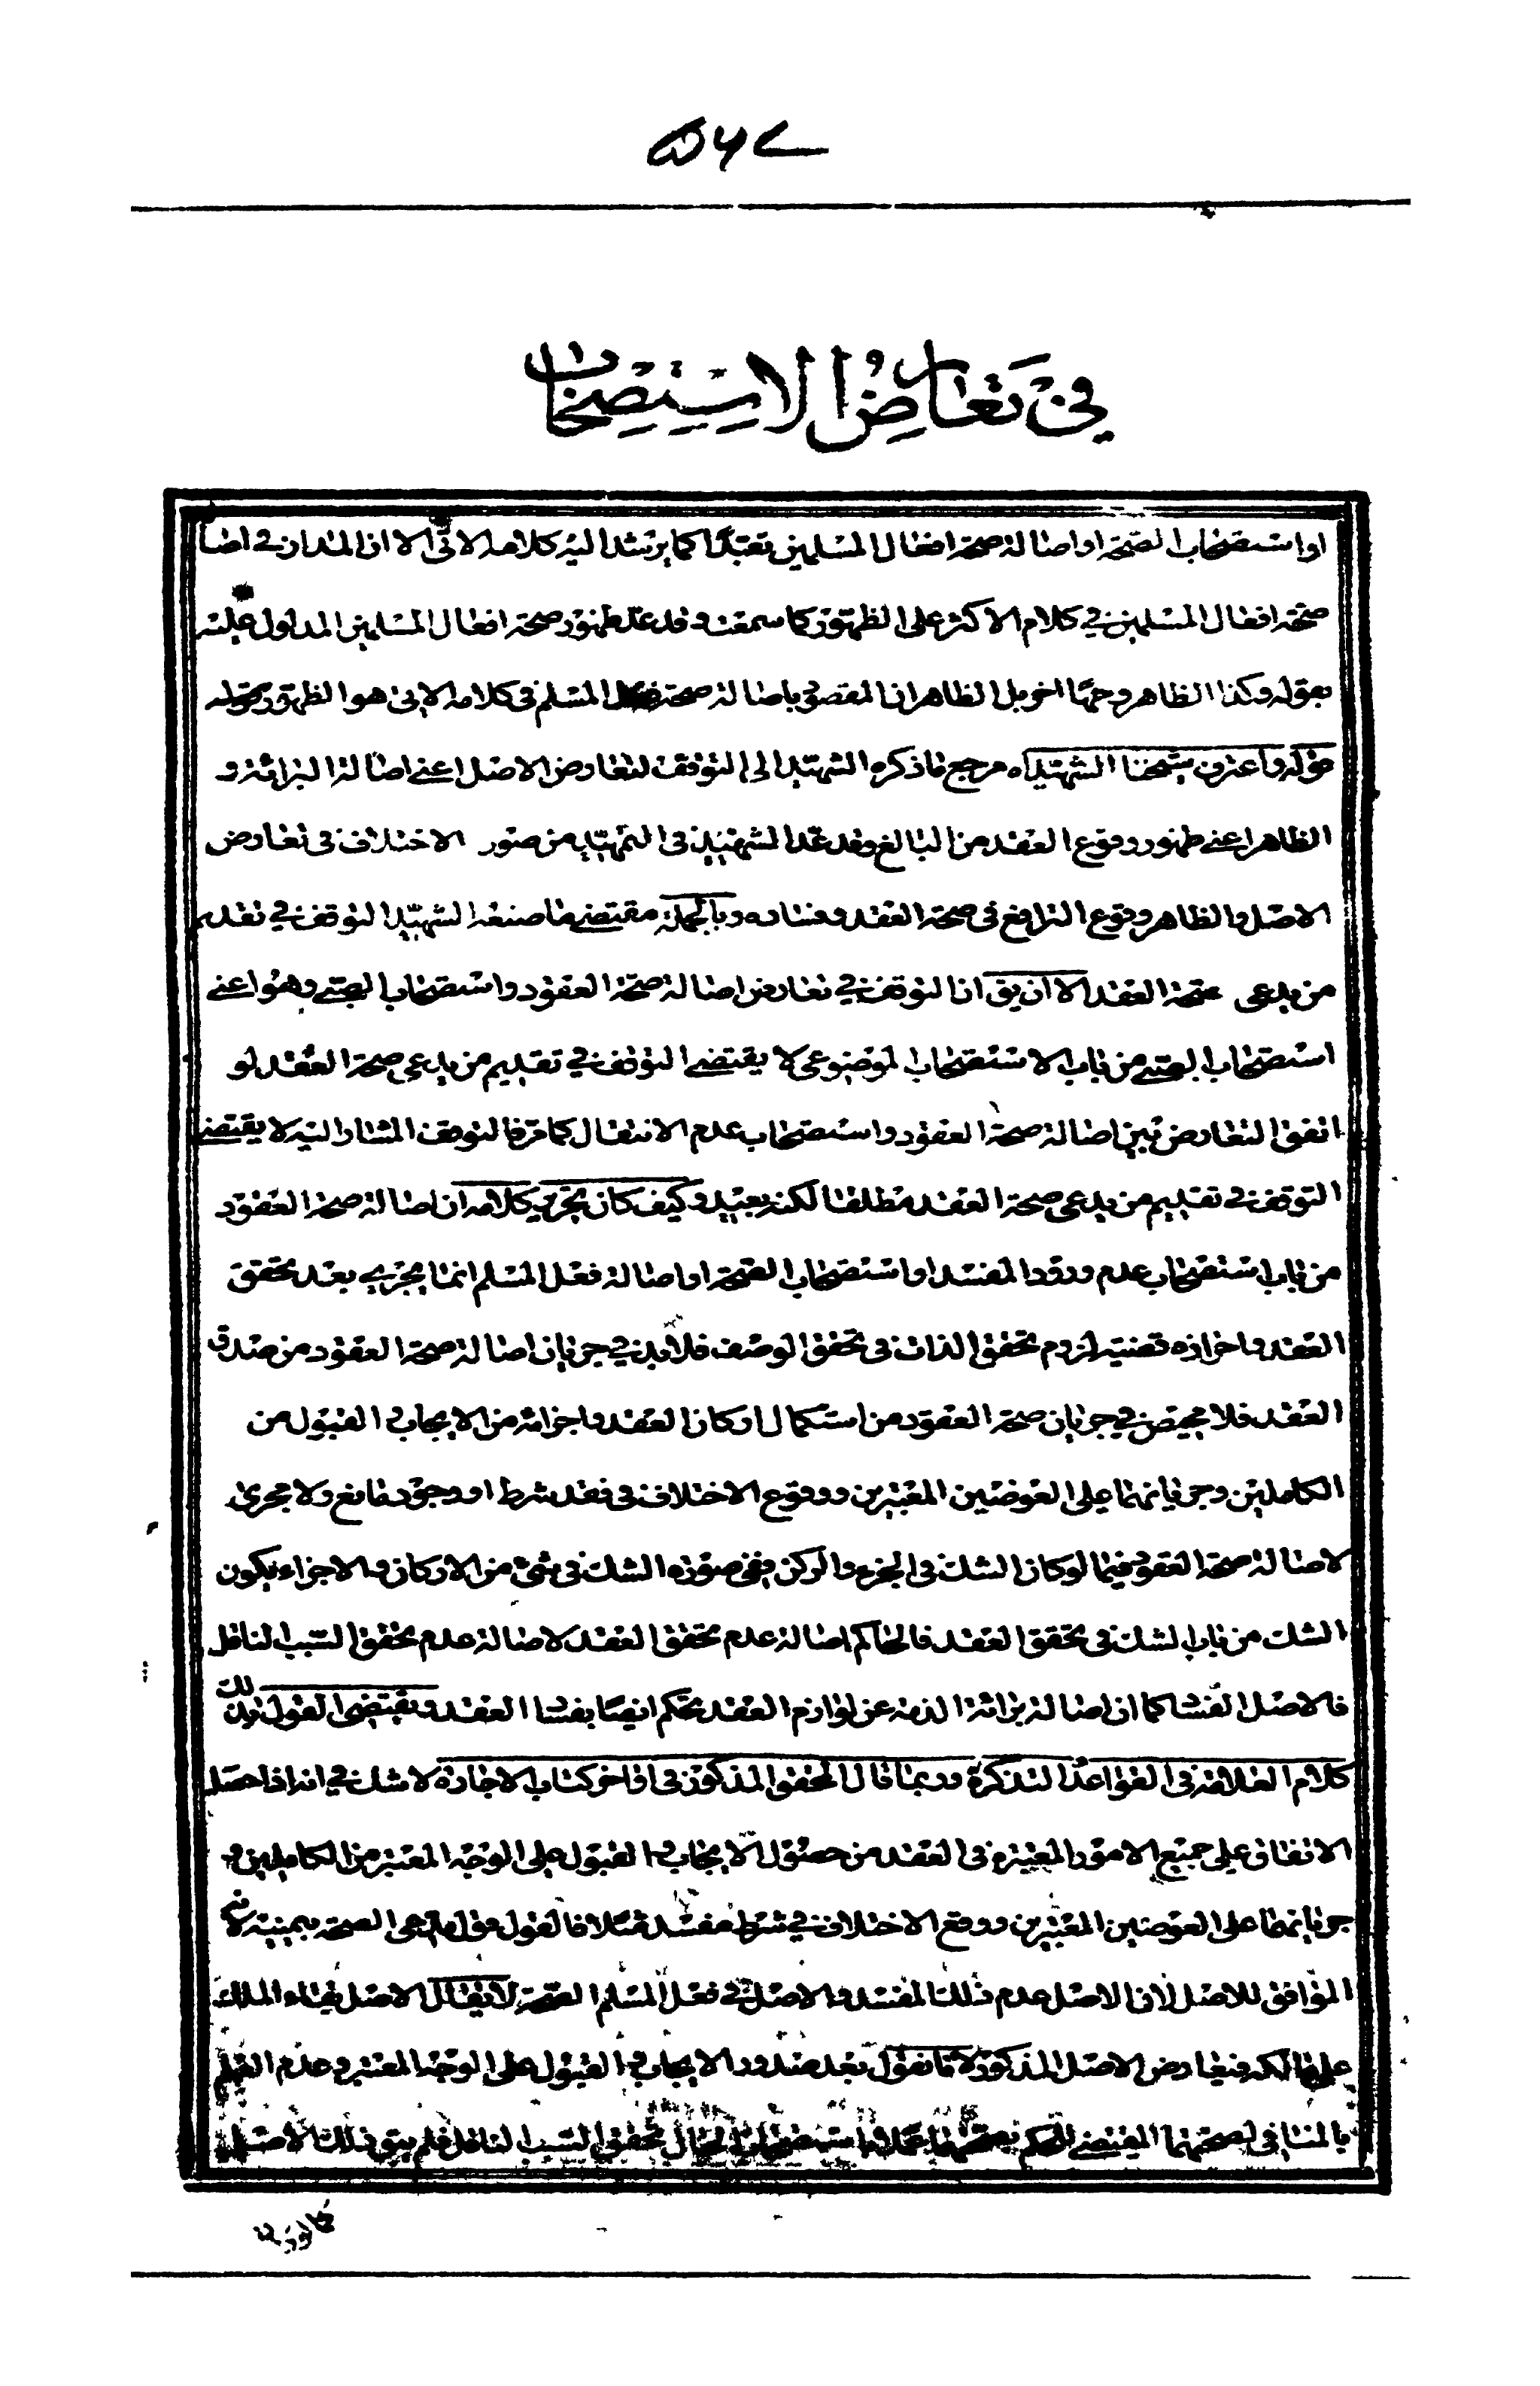 ۵۶۷
في تعارض الاستصحاب
او استصحاب الصحة او اصالة صحة افعال المسلمين تعبدا كما يرشد اليه كلامه الاتى الا ان المدار في اصا
صحة افعال المسلمين في كلام الاكثر على الظهور كما سمعت وقد علل ظهور صحة افعال المسلمين المداول عليه
بقوله وكذا الظاهر وجها اخر بل الظاهر ان المقصود باصالة صحة فعل المسلم في كلامه الاتى هو الظهور بقوله
قوله واعترف شيخنا الشهيد اه مرجع ماذكره الشهيد الى التوقف لتعارض الاصل اعني اصالة البرائة و
الظاهر اعني ظهور وقوع العقد من البالغ وقد عد الشهيد في التمهيد من صور الاختلاف في تعارض
الاصل والظاهر وقوع الترافع في صحة العقد وفساده وبالجملة مقتضى ما صنعه الشهيد التوقف في تقديم
من يدعى صحة العقد الا ان يق ان التوقف في تعارض اصالة صحة العقود واستصحاب الصبى وهو اعني
استصحاب الصبى من باب الاستصحاب الموضوعى لا يقتضى التوقف في تقديم من يدعى صحة العقد لو
اتفق التعارض بين اصالة صحة العقود واستصحاب عدم الانتقال كما مر فالتوقف المشار اليه لا يقتضى
التوقف في تقديم من يدعى صحة العقد مطلقا لكنه بعيد وكيف كان تحرير كلامه ان اصالة صحة العقود
من باب استصحاب عدم ورود المفسد او استصحاب الصحة او اصالة فعل المسلم انما يجرى بعد تحقق
العقد واحرازه قضية لزوم تحقق الذات في تحقق الوصف فلابد في جريان اصالة صحة العقود من صدق
العقد فلا محيص في جريان صحة العقود من استكمال اركان العقد واجزائه من الايجاب و القبول من
الكاملين وجريانهما على العوضين المعتبرين ووقوع الاختلاف في فقد شرط او وجود مانع ولا مجرى
لاصالة صحة العقود فيما لو كان الشك في الجزء والركن ففي صورة الشك في شئ من الاركان والاجزاء يكون
الشك من باب الشك في تحقق العقد فالحاكم اصالة عدم تحقق العقد لاصالة عدم تحقق السبب الناقل
فالاصل الفساد كما ان اصالة برائة الذمة عن لوازم العقد يحكم ايضا بفساد العقد ويقتضى القول بذلك
كلام العلامة في القواعد والتذكرة وربما قال المحقق المذكور في اواخر كتاب الاجارة لا شك في انه اذا حصل
الاتفاق على جميع الامور المعتبرة في العقد من حصول الايجاب و القبول على الوجه المعتبر من الكاملين و
جريانهما على العوضين المعتبرين ووقع الاختلاف في شرط مفسد مثلا فالقول قول مدعى الصحة بيمينه لانه
الموافق للاصل لان الاصل عدم ذلك المفسد والاصل في فعل المسلم الصحة لا يقال الاصل بقاء الملك
على مالكه فيعارض الاصل المذكور لانا نقول بعد صدور الايجاب و القبول على الوجه المعتبر وعدم العلم
بالمنافى لصحتهما المقتضى للحكم بصحتهما عملا باستصحاب الحال تحقق السبب الناقل فلم يبق ذلك الاصل